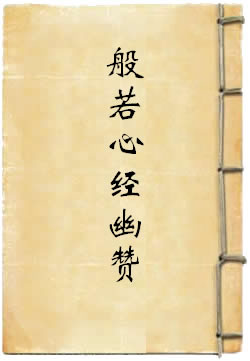 般若心经幽赞